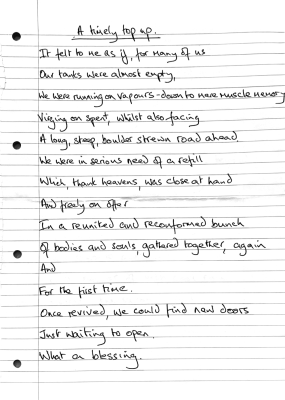 A timely top up.
It felt to me as if, for many of us
Our tanks were almost empty,
We were running on vapours - down to mere muscle memory
Virging on spent, whilst also facing
A long, steep, boulder strewn road ahead.
We were in serious need of a refill
Which, thank heavens was close at hand
And freely on offer
In a reunited and reconformed bunch
Of bodies and souls, gathered together, again
And
For the first time.
Once revived, we could find new doors
Just waiting to open.
What a blessing.